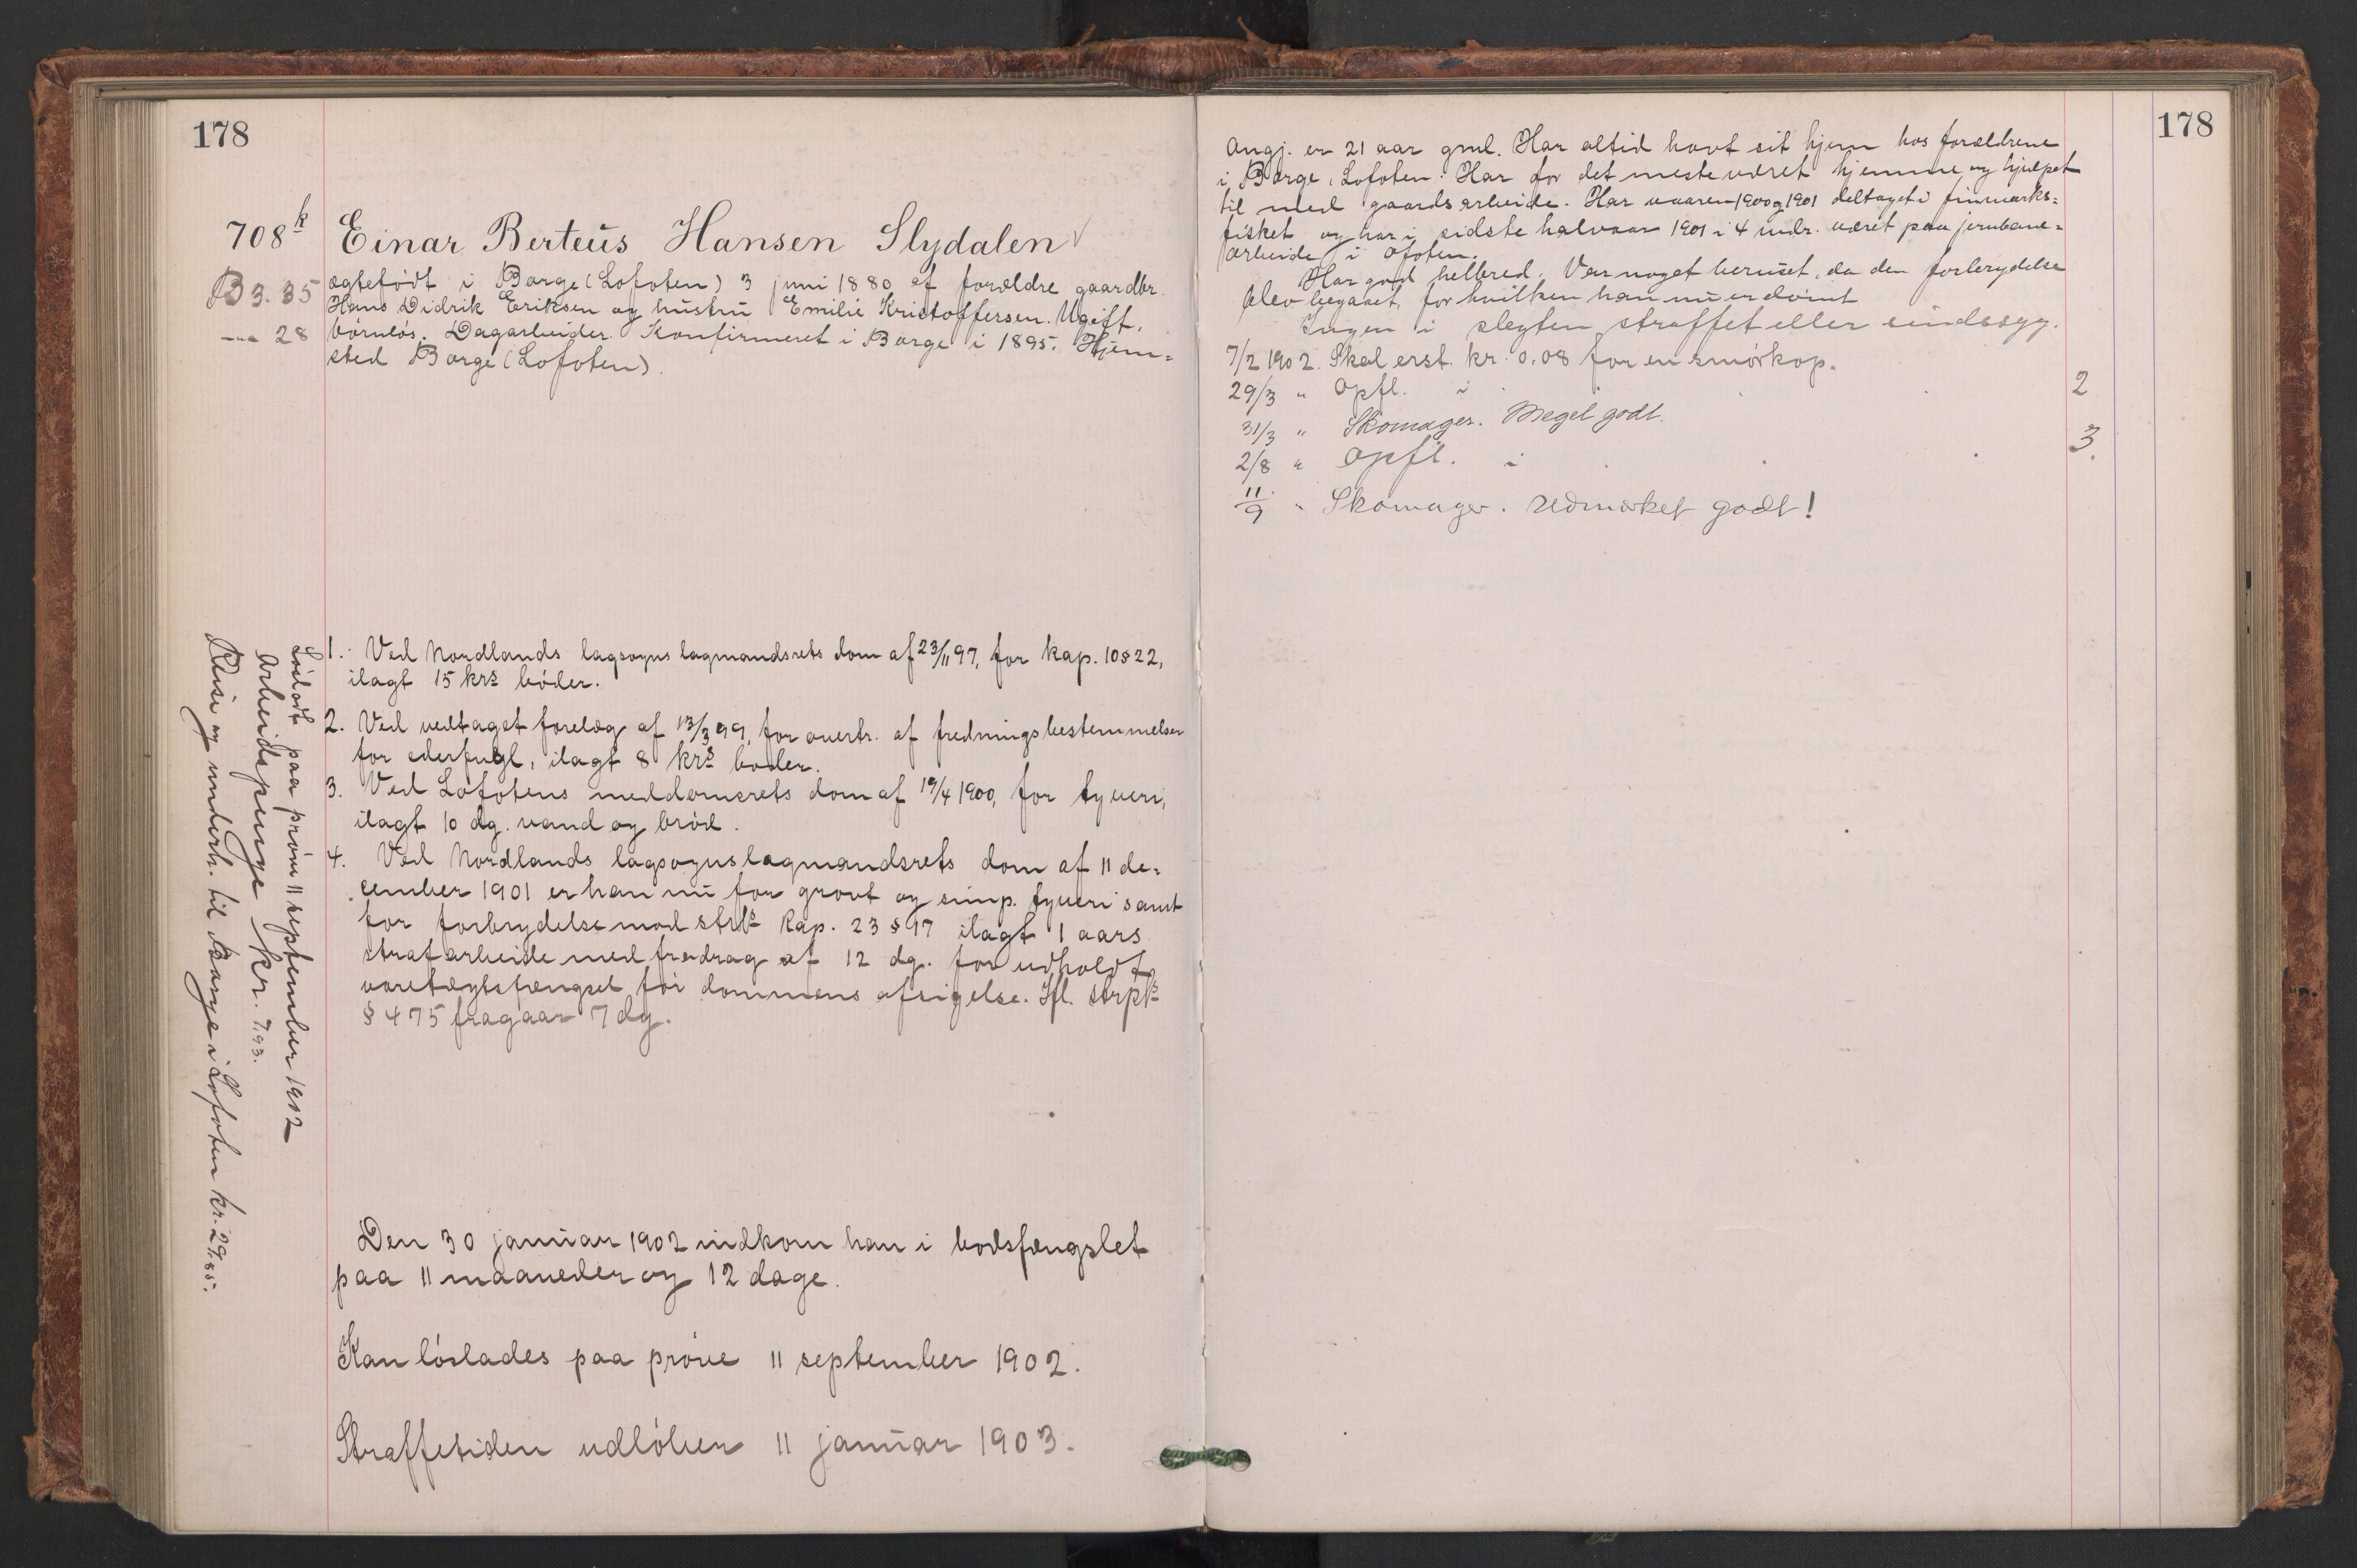 178
708 k Einar Berteus Hansen Slydalen √
B 3. 35
— 28
ægtefödt i Borge (Lofoten) 3 juni 1880 af forældre gaardbr.
Hans Didrik Eriksen og hustru Emilie Kristoffersen. Ugift,
börnlös. Dagarbeider. Konfirmeret i Borge i 1895. Hjem=
sted Borge (Lofoten).
1. Ved Nordlands lagsogns lagmandsrets dom af 23/11 97, for kap. 10 § 22,
ilagt 15 krs böder.
2. Ved vedtaget forelæg af 13/3 99, for overtr. af fredningsbestemmelser
for ederfugl, ilagt 8 krs böder.
3. Ved Lofotens meddomsrets dom af 19/4 1900, for tyveri,
ilagt 10 dg. vand og bröd.
4. Ved Nordlands lagsogns lagmandsrets dom af 11 de=
cember 1901 er han nu for grovt og simp. tyveri samt
for forbrydelse mod strls kap. 23 § 97 ilagt 1 aars
strafarbeide med fradrag af 12 dg. for udholdt
varetægtsfængsel för dommens afsigelse. Ifl. strpls
§ 475 fragaar 7 dg.
Den 30 januar 1902 indkom han i bodsfængslet
paa 11 maaneder og 12 dage.
Kan löslades paa pröve 11 september 1902.
Straffetiden udlöber 11 januar 1903.
Lösladt paa pröve 11 september 1902
Arbeidspenge kr. 7.93.
Reise og underh. til Borge i Lofoten kr. 29.85.
178
Angj. er 21 aar gml. Har altid havt sit hjem hos forældrene
i Borge, Lofoten. Har for det meste været hjemme og hjulpet
til med gaardsarbeide. Har vaaren 1900 og 1901 deltaget i finmarks=
fisket og har i sidste halvaar 1901 i 4 mdr. været paa jernbane=
arbeide i Ofoten.
Har god helbred. Var noget beruset, da den forbrydelse
blev begaaet, for hvilken han nu er dömt
Ingen i slegten straffet eller sindssyg.
7/2 1902. Skal erst. kr. 0.08 for en smörkop.
29/3 " Opfl. i . . . 2
31/3 " Skomager. Meget godt.
2/8 " Opfl. i . . . 3.
11/9 " Skomager. Udmærket godt!